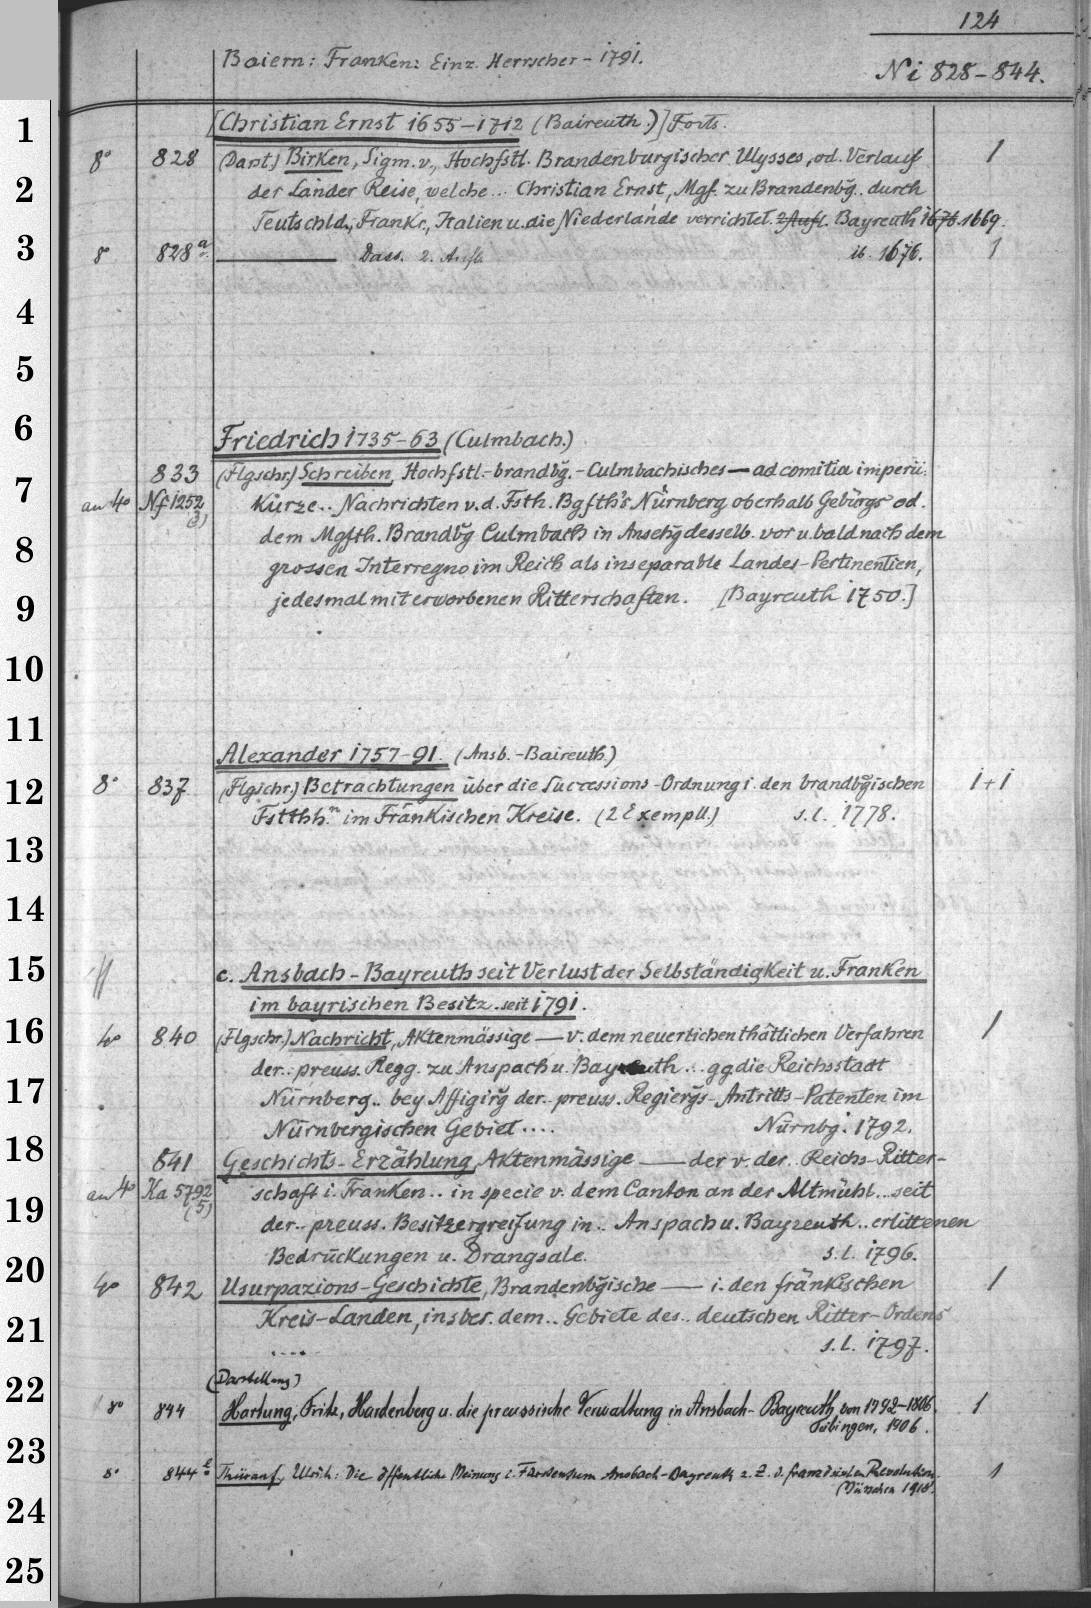 124
Baiern: Franken: Einz. Herrscher - 1791.
Ni 828-844.
1
[Christian Ernst 1655-1712 (Baireuth.)] Forts.
8° 828 (Darst.) Birken, Sigm. v., Hochfstl. Brandenburgischer Ulysses, od. Verlauf 1
2
der Länder Reise, welche... Christian Ernst, Mgf. zu Brandenbg. durch
Teutschld., Frankr., Italien u. die Niederlande verrichtet. 2. Aufl. Bayreuth 1676. 1669.
3
8° 828a ——— Dass. 2. Aufl. ib. 1676. 1
4
5
6
Friedrich 1735-63 (Culmbach.)
833 (Flgschr.) Schreiben, Hochfstl.-brandbg.-Culmbachisches — ad comitia imperii.
7
an 4° Nf 1252 Kurze.. Nachrichten v. d. Fsth. Bgfth's Nürnberg oberhalb Gebürgs od.
(3)
8
dem Mgfth. Brandbg Culmbach in Ansehg desselb. vor u. bald nach dem
grossen Interregno im Reich als inseparable Landes-Pertinentien,
9
jedesmal mit erworbenen Ritterschaften. [Bayreuth 1750.]
10
11
Alexander 1757-91. (Ansb.-Baireuth.)
12
8° 837 (Flgschr.) Betrachtungen über die Successions-Ordnung i. den brandbgischen 1+1
Fstthh.n im Fränkischen Kreise. (2 Exempll.) s. l. 1778.
13
14
15
c. Ansbach-Bayreuth seit Verlust der Selbständigkeit u. Franken
im bayrischen Besitz. seit 1791.
16
4° 840 (Flgschr.) Nachricht, Aktenmässige — v. dem neuerlichen thätlichen Verfahren 1
der.. preuss. Regg. zu Anspach u. Bayreuth... gg die Reichsstadt
17
Nürnberg.. bey Affigirg der.. preuss. Regiergs-Antritts-Patenten im
Nürnbergischen Gebiet.... Nürnbg. 1792.
18
841 Geschichts-Erzählung, Aktenmässige — der v. der.. Reichs-Ritter-
19
an 4° Ka 5792 schaft i. Franken.. in specie v. dem Canton an der Altmühl.. seit
(5)
der.. preuss. Besitzergreifung in.. Anspach u. Bayreuth.. erlittenen
Bedrückungen u. Drangsale. s. l. 1796.
20
4° 842 Usurpazions-Geschichte, Brandenbgische — i. den fränkischen 1
Kreis-Landen, insbes. dem.. Gebiete des.. deutschen Ritter-Ordens
21
.... s. l. 1797.
22
(Darstellung)
8° 844 Hartung, Fritz, Hardenberg u. die preussische Verwaltung in Ansbach-Bayreuth von 1792-1806. 1
Tübingen, 1906.
23
8° 844 Thürauf, Ulrich: Die öffentliche Meinung i. Fürstentum Ansbach-Bayreuth z. Z. d. französischen Revolution. 1
24
München 1918.
25